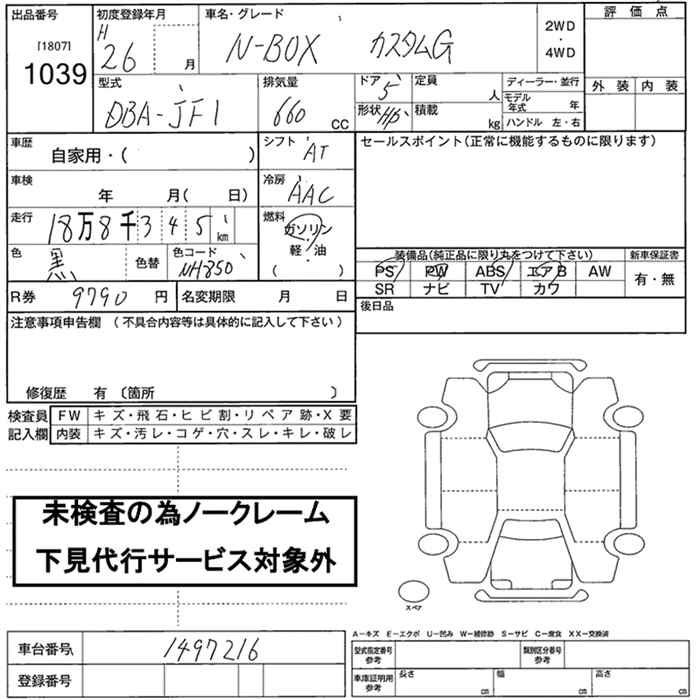 出品番号 初度登録年月 車名・グレード 評価点
[1807] H 2WD
1039 26 月 N-BOX カスタムG ・
4WD
型式 排気量 ドア 5 定員 人 ディーラー・並行 外装 内装
DBA-JF1 660 cc 形状 HB 積載 kg モデル年式 年
ハンドル 左・右
車歴 自家用・( ) シフト AT セールスポイント(正常に機能するものに限ります)
車検 年 月( 日) 冷房 AAC
走行 18万8千345 km 燃料 ガソリン
軽・油
( )
色 黒 色替 色コード NH850 装備品(純品に限り丸をつけて下さい) 新車保証書
PS PW ABS エアB AW 有・無
SR ナビ TV カワ
R券 9790 円 名変期限 月 日 後日品
注意事項申告欄 (不具合内容等は具体的に記入して下さい)
修復歴 有 〔箇所 〕
検査員 FW キズ・飛石・ヒビ割・リペア跡・X要
記入欄 内装 キズ・汚レ・コゲ・穴・スレ・キレ・破レ
未検査の為ノークレーム
下見代行サービス対象外
スペア
A-キズ E-エクボ U-凹み W-補修跡 S-サビ C-腐食 XX-交換済
車台番号 1497216 型式指定番号 参考 類別区分番号 参考
登録番号 車庫証明用 参考 長さ cm 幅 cm 高さ cm